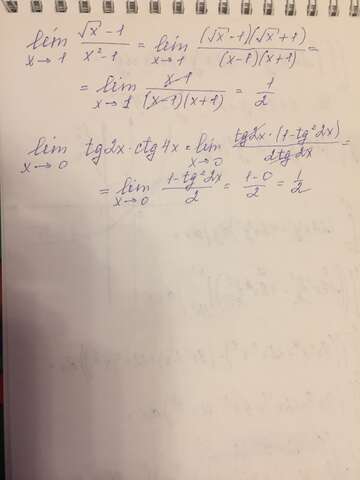 lim x→1 (√x - 1)/(x² - 1) = lim x→1 ((√x - 1)(√x + 1))/((x - 1)(x + 1)) =
= lim x→1 (x - 1)/((x - 1)(x + 1)) = 1/2
lim x→0 tg2x · ctg4x = lim x→0 (tg2x · (1 - tg²2x))/(2tg2x) =
= lim x→0 (1 - tg²2x)/2 = (1 - 0)/2 = 1/2